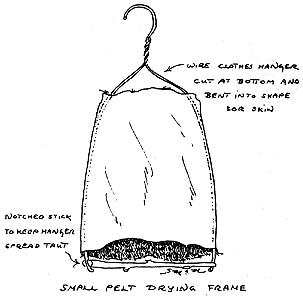 WIRE CLOTHES HANGER
CUT AT BOTTOM AND
BENT INTO SHAPE
FOR SKIN
NOTCHED STICK
TO KEEP HANGER
SPREAD TAUT
SMALL PELT DRYING FRAME